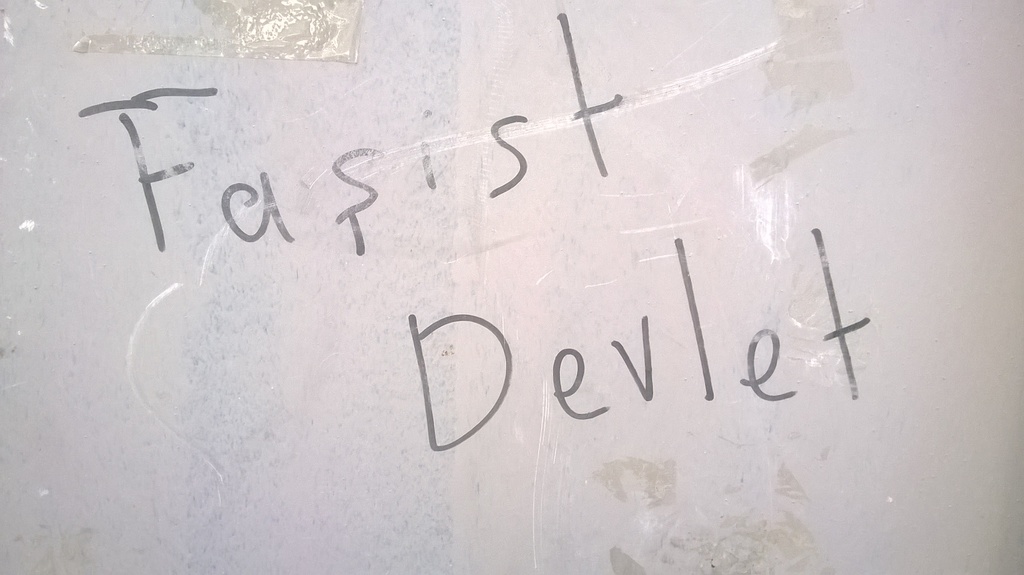 Faşist
Devlet